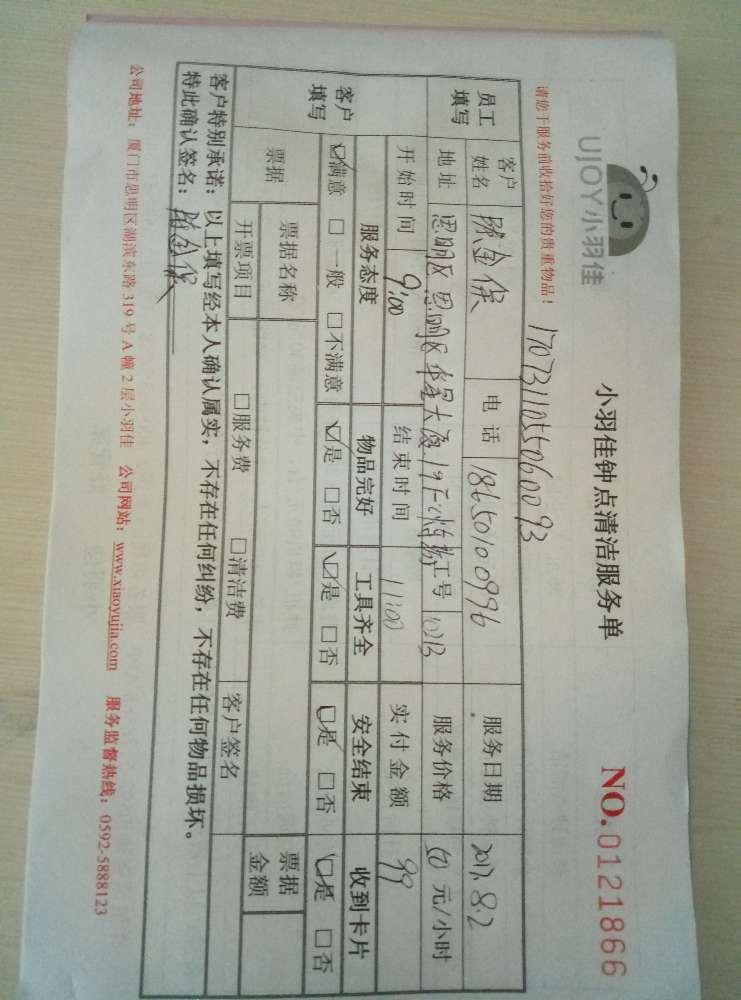 UJOY小羽佳
小羽佳钟点清洁服务单
NO.0121866
请您于服务前收拾好您的贵重物品！
1707311055060093
员工填写 客户姓名 电话 18650100996 服务日期 2017.8.2
地址 思明区思明区 大厦 工号 服务价格 60 元/小时
开始时间 9:00 结束时间 11:00 实付金额 99
客户填写 服务态度 物品完好 工具齐全 安全结束 收到卡片
☑满意 □一般 □不满意 ☑是 □否 ☑是 □否 ☑是 □否 ☑是 □否
票据 票据名称 票据金额
开票项目 □服务费 □清洁费 客户签名
客户特别承诺：以上填写经本人确认属实，不存在任何纠纷，不存在任何物品损坏。
特此确认签名：
公司地址：厦门市思明区湖滨东路319号A幢2层小羽佳 公司网站：www.xiaoyujia.com 服务监督热线：0592-5888123